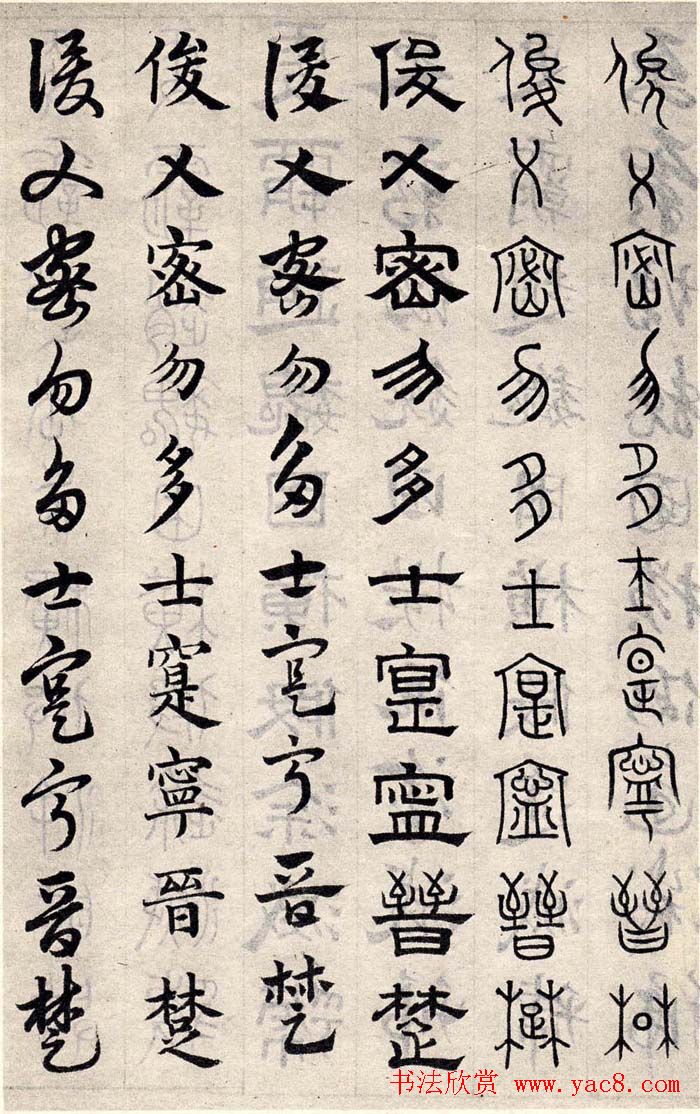 俊乂密勿多士寔寧晉楚
俊乂密勿多士寔寧晉楚
俊乂密勿多士寔寧晉楚
俊乂密勿多士寔寧晉楚
俊乂密勿多士寔寧晉楚
俊乂密勿多士寔寧晉楚
书法欣赏 www.yac8.com